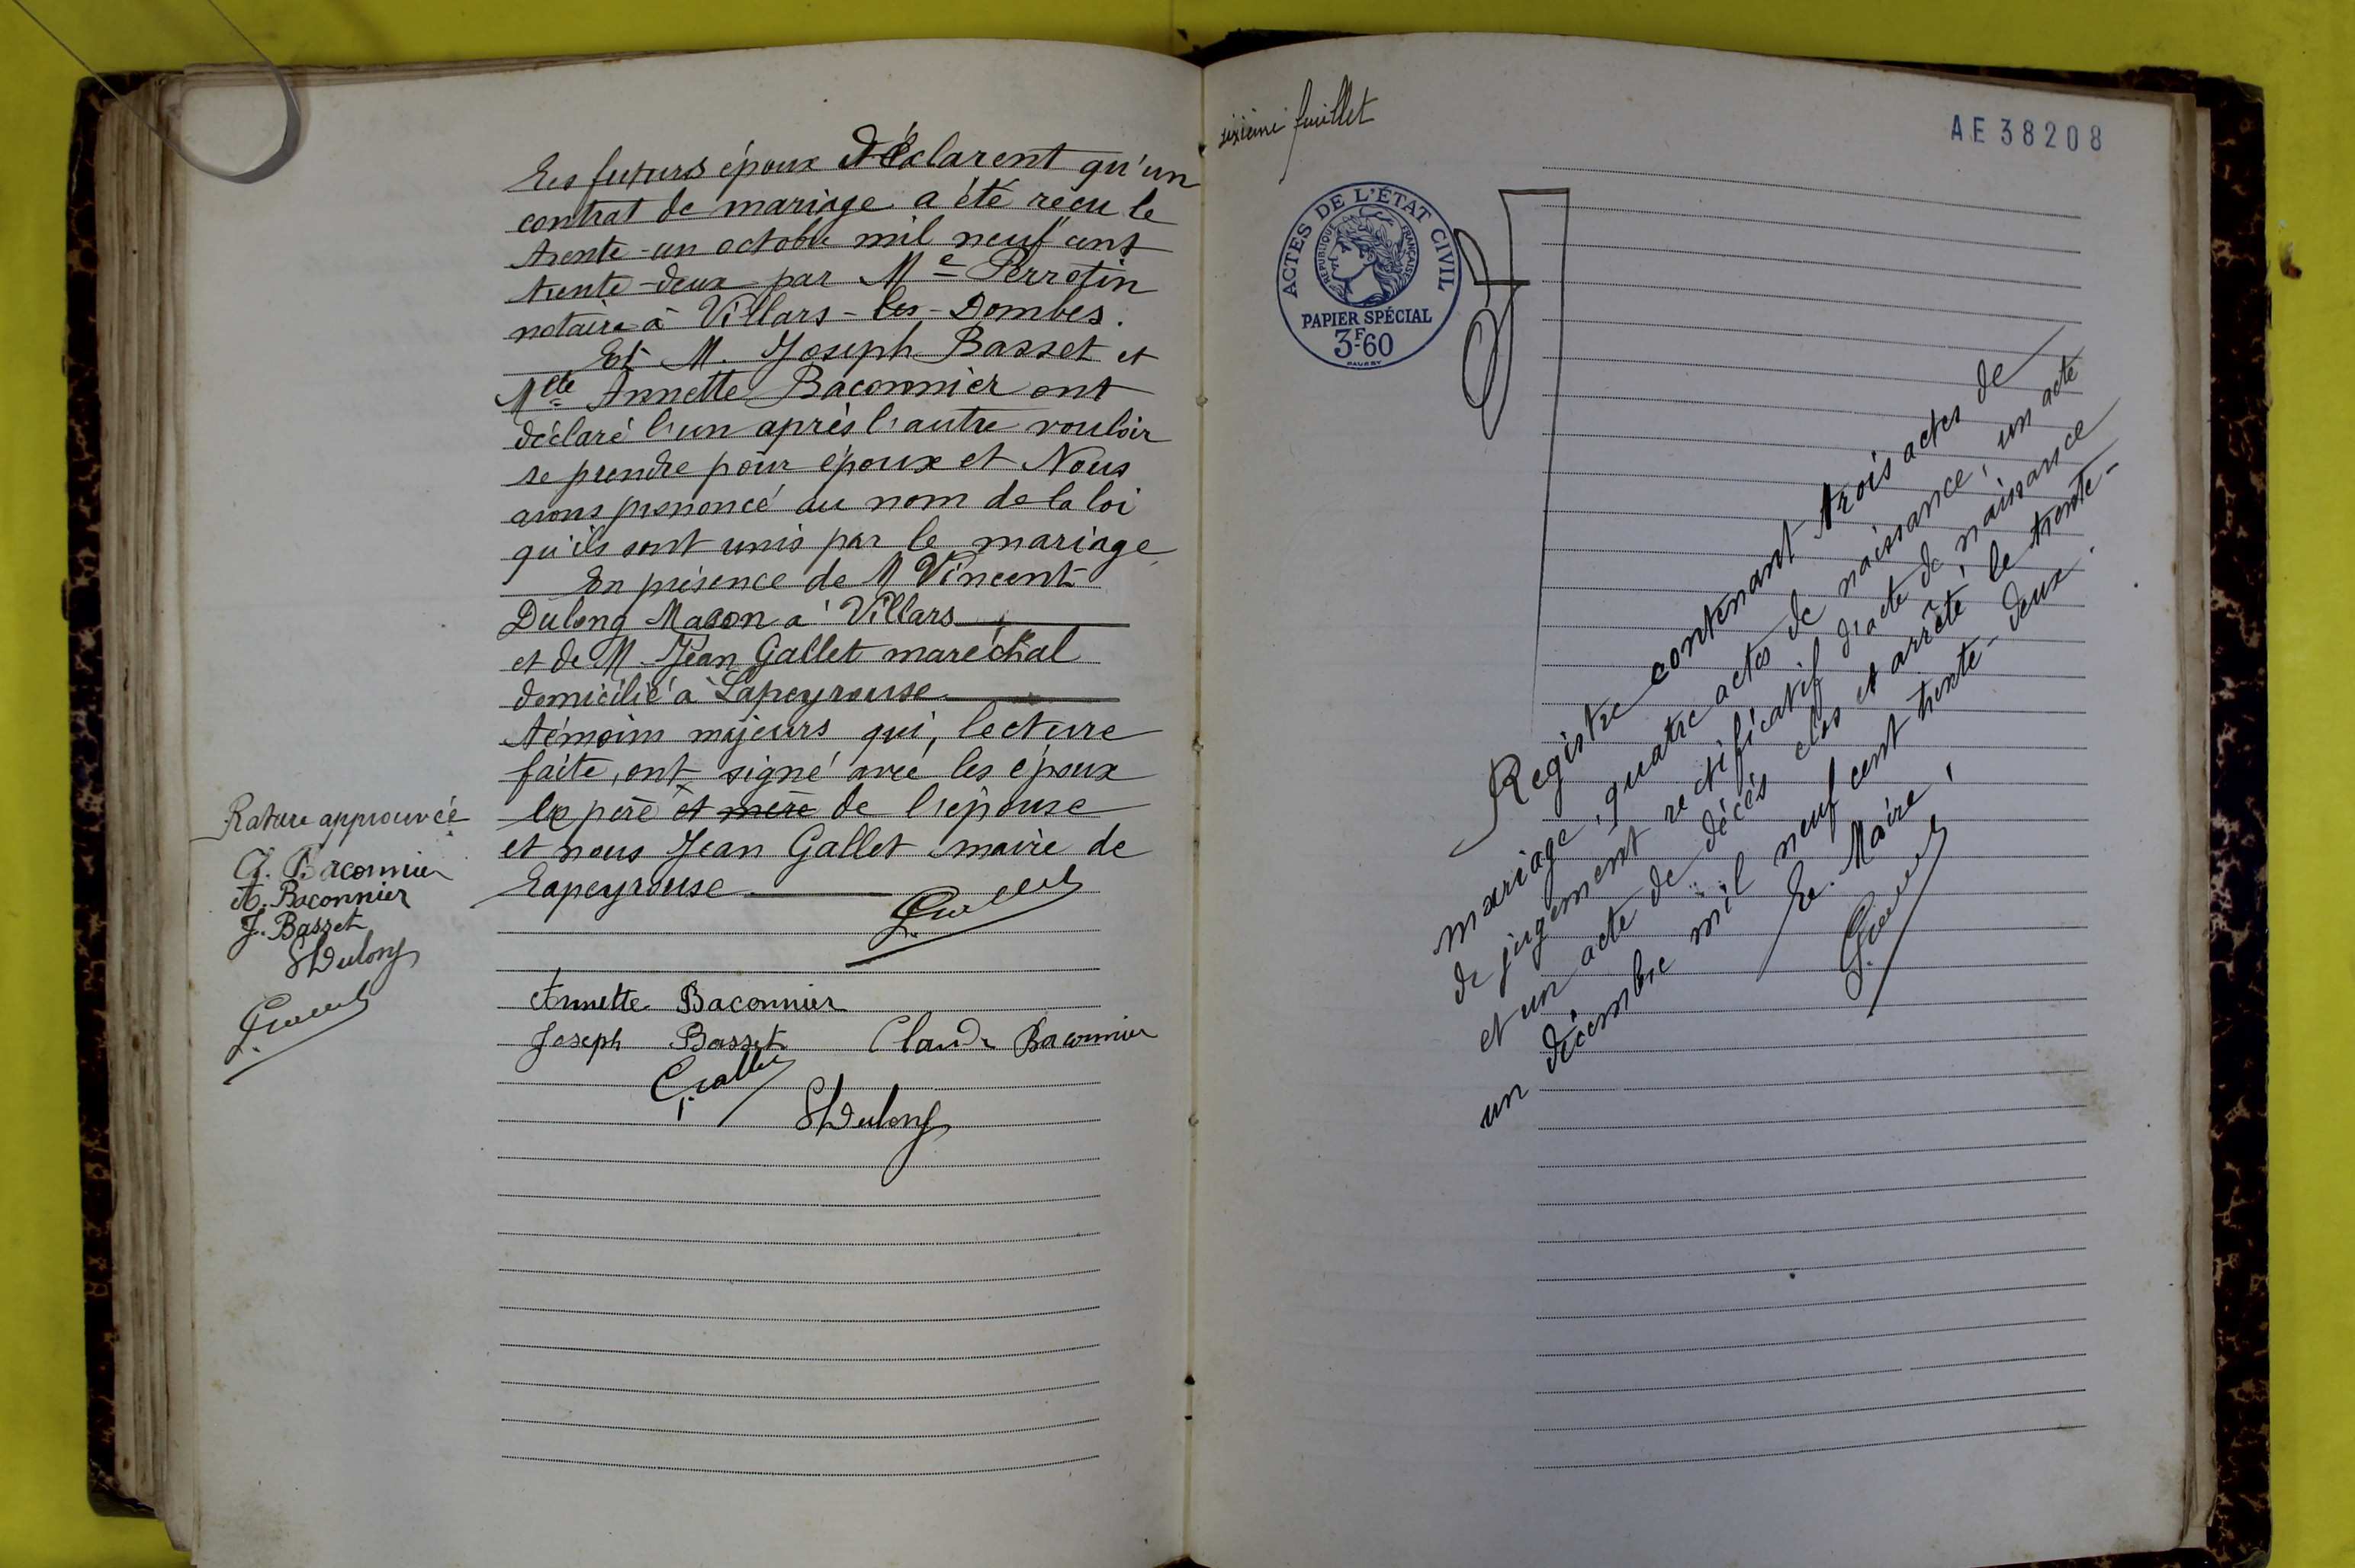 Les futurs époux déclarent qu'un
contrat de mariage a été reçu le
trente-un octobre mil neuf cent
trente-deux par Me Perrotin
notaire à Villars-les-Dombes.
Et M. Joseph Basset et
Mlle Annette Baconnier ont
déclaré l'un après l'autre vouloir
se prendre pour époux et Nous
avons prononcé au nom de la loi
qu'ils sont unis par le mariage
En présence de M Vincent
Dulong Maçon à Villars
et de M. Jean Gallet maréchal
domicilié à Lapeyrouse
témoins majeurs qui, lecture
faite, ont signé avec les époux
le père et mère de l'épouse
et nous Jean Gallet maire de
Lapeyrouse
Rature approuvée
C. Baconnier
A. Baconnier
J. Basset
Dulong
Annette Baconnier
Joseph Basset Claude Baconnier
J. Gallet
Dulong
sixième feuillet
AE 38208
ACTES DE L'ÉTAT CIVIL
RÉPUBLIQUE FRANÇAISE
PAPIER SPÉCIAL
3F60
Registre contenant trois actes de
mariage, quatre actes de naissance, un acte
de jugement rectificatif d'acte de naissance
et un acte de décès clos et arrêté le trente-
un décembre mil neuf cent trente-deux.
Le Maire,